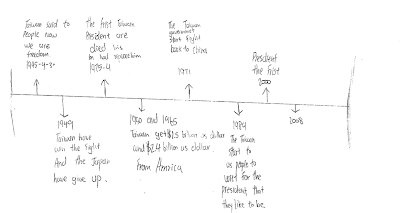 Taiwan said to
People now
we are
freedom.
1975-4-3-
The first Taiwan
President are
died his
1975-4
The Taiwan
government
start fight
back to China
1971
President
the first
2000
1949
Taiwan have
win the fight
And the Japan
have gave up.
1950 and 1965
Taiwan get $1.5 billion us dollar
and $2.4 billion us dollar.
from America
1984
The Taiwan
start to
us people to
vote for the
president that
they like to be.
2008